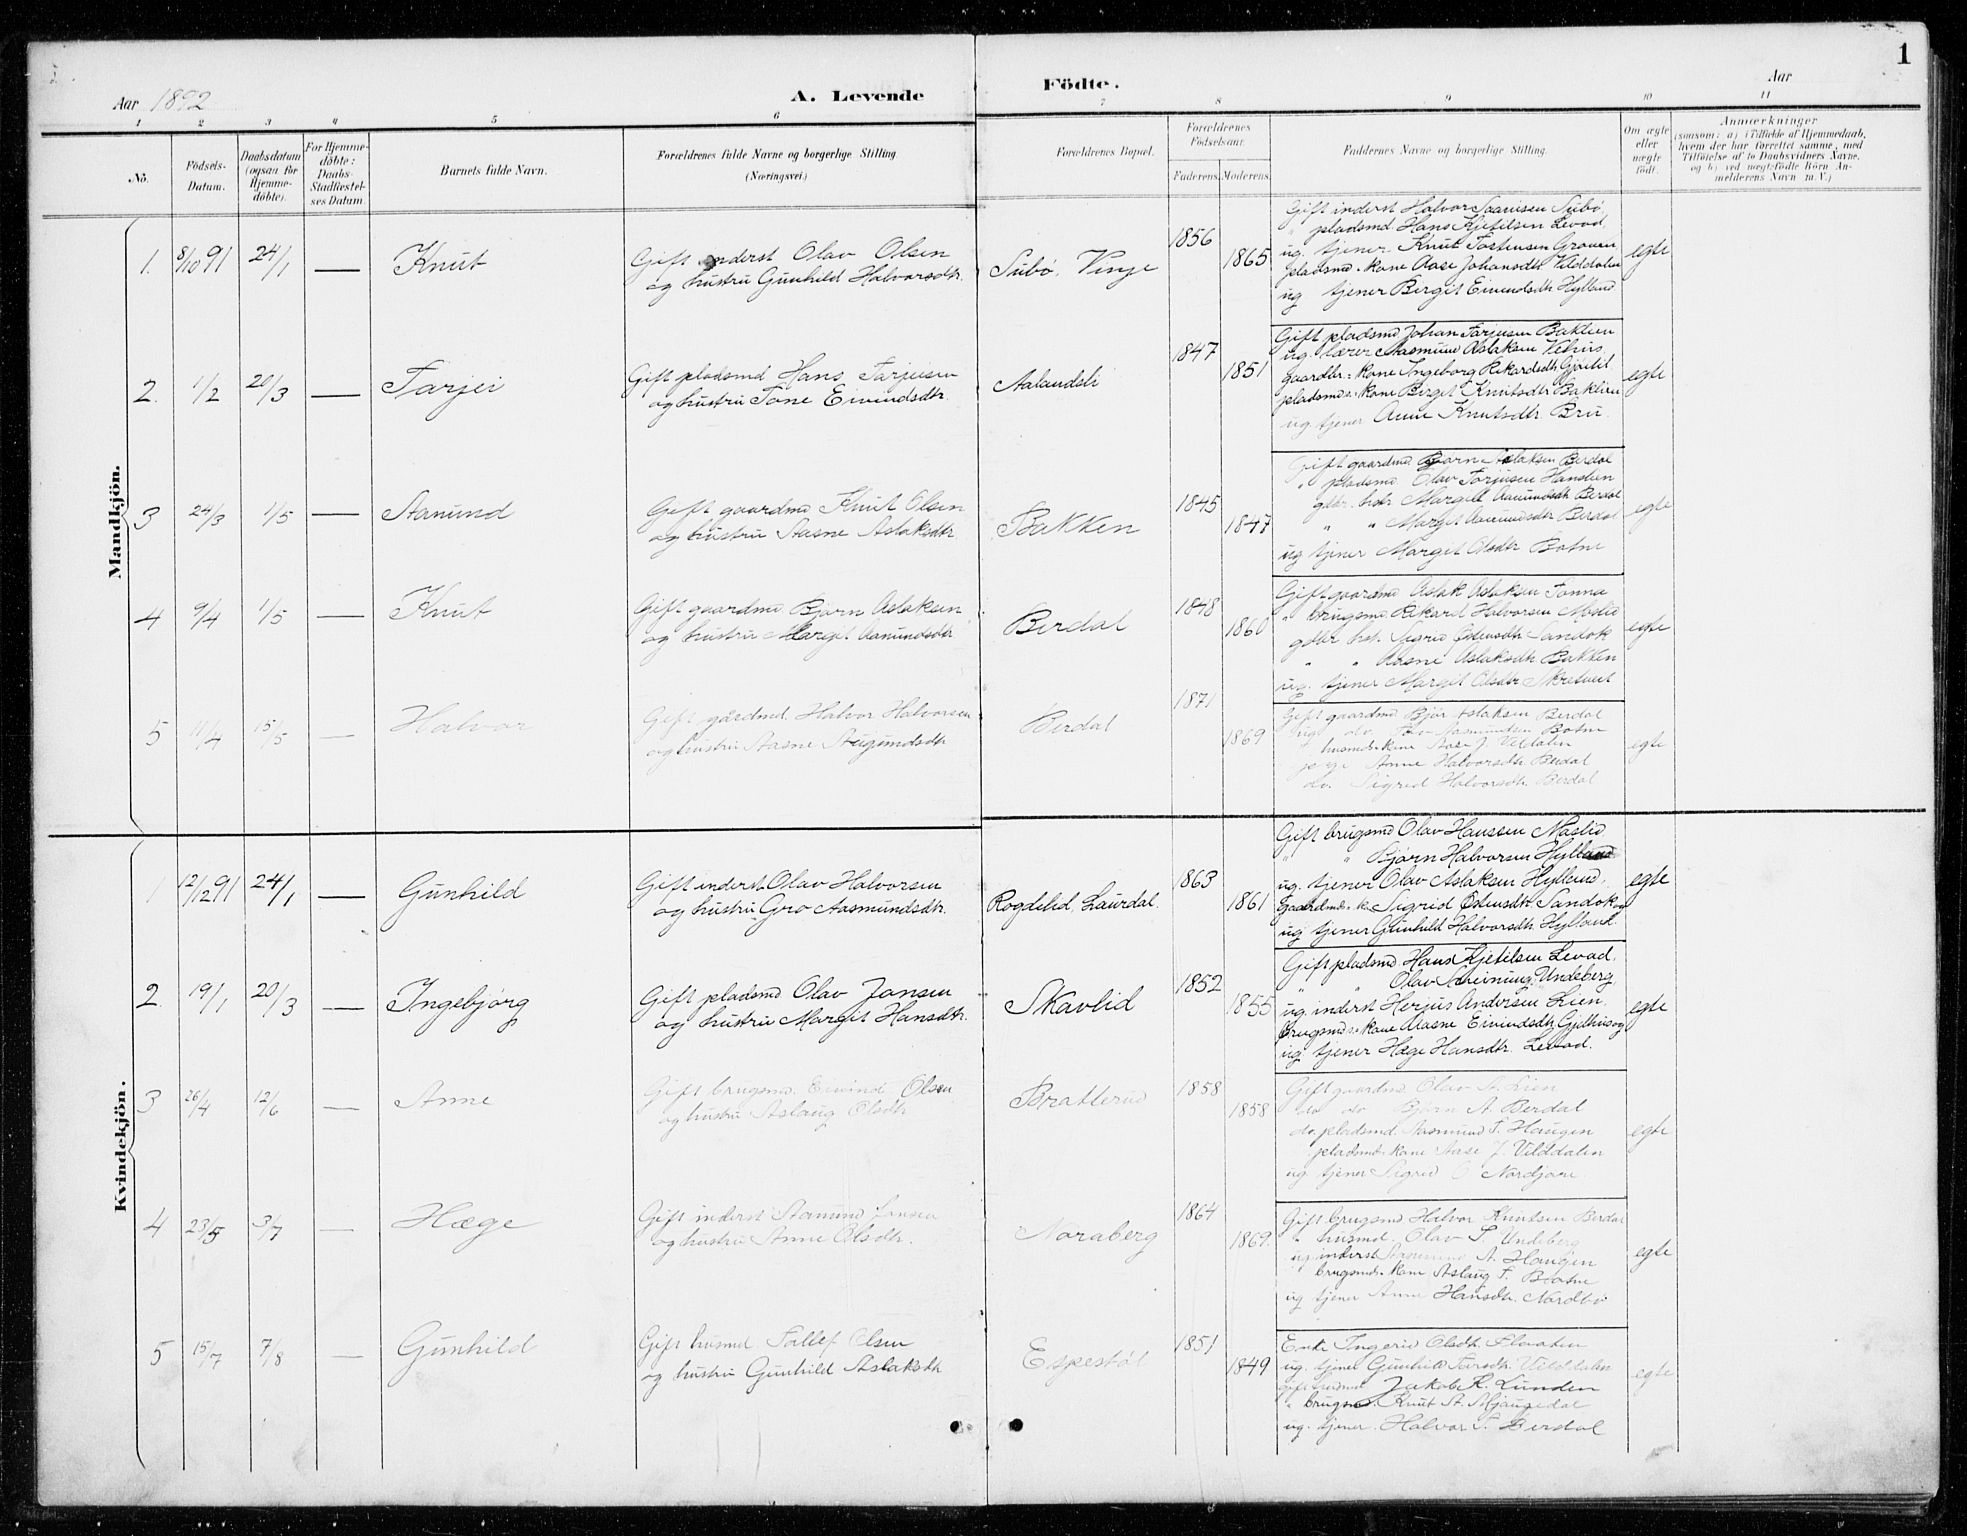 1
Aar 1892 A. Levende Födte. Aar
1 2 3 4 5 6 7 8 9 10 11
No.
Födsels-
Datum.
Daabsdatum
(ogsaa for
Hjemme-
döbte).
For Hjemme-
döbte:
Daabs-
Stadfæstel-
ses Datum.
Barnets fulde Navn.
Forældrenes fulde Navne og borgerlige Stilling
(Næringsvei.)
Forældrenes Bopæl.
Forældrenes
Födselsaar.
Faderens. Moderens.
Faddernes Navne og borgerlige Stilling.
Om ægte
eller
uægte
født.
Anmærkninger
(saasom: a) i Tilfælde af Hjemmedaab,
hvem der har forrettet samme, med
Tilföielse af to Daabsvidners Navne,
og b) ved uægtefödte Börn An-
melderens Navn m. V.)
Mandkjön.
1. 8/10 91 24/1 — Knut
Gift inderst Olav Olsen
og hustru Gunhild Halvorsdtr.
Subö, Vinje
1856
1865
Gift inderst Halvor Saamsen Subö
" pladsmd Hans Kjetilsen Levad
ug. tjener Knut Tostensen Groven
pladsmd.s kone Aase Johansdtr Vilddalen
ug tjener Bergit Eivindsdtr Hylland
egte
2. 1/2 20/3 — Tarjei
Gift pladsmd Hans Tarjeisen
og hustru Tone Eivindsdtr.
Aalandsli
1847
1851
Gift pladsmd Johan Tarjeisen Baklien
ug. lærer Aasmund Aslaksen Vehus
gaardbr.s kone Ingeborg Rikardsdtr Gjöitil
pladsmd.s kone Berget Knutsdtr Baklien
ug. tjener Anne Knutsdtr. Bru
egte
3 24/3 1/5 — Aamund
Gift gaardmd Knut Olsen
og hustru Aasne Aslaksdtr
Bakken
1845
1847
Gift gaardmd Bjørn Aslaksen Berdal
" pladsmd. Olav Tarjeisen Hanslien
gdbr. hst. Margit Aamundsdtr Berdal
" " Margit Aamundsdtr Berdal
ug tjener Margit Olsdtr Botne
egte
4 9/4 1/5 — Knut
Gift gaardmd Bjørn Aslaksen
og hustru Margit Aamundsdtr
Berdal
1848
1860
Gift gaardmd Aslak Aslaksen Tonna
" brugsmd Rikard Halvorsen Möslid
gdbr hst. Sigrid Östensdtr Sandok
" " Aasne Aslaksdtr Bakken
ug. tjener Margit Olsdtr Skretveit
egte
5 11/4 15/5 — Halvor
Gift gårdmd. Halvor Halvorsen
og hustru Aasne Augundsdtr
Berdal
1871
1869
Gift gaardmd Bjør Aslaksen Berdal
ug. do. Aasmundsen Botne
husmds kone Aase J. Vildalen
pige Anne Halvorsdtr. Berdal
do. Sigrid Halvorsdtr. Berdal
egte
Kvindekjön.
1 12/12 91 24/1 — Gunhild
Gift inderst Olav Halvorsen
og hustru Gro Aasmundsdtr.
Rogdelid, Laurdal.
1863
1861
Gift brugsmd Olav Hanssen Maslid
" " Bjørn Halvorsen Hylland
ug. tjener Olav Aslaksen Hylland.
gaardmds. k. Sigrid Östensdtr Sandok og
ug tjener Gunhild Halvorsdtr Hylland.
egte
2 19/1 20/3 — Ingebjörg
Gift pladsmd. Olav Jansen
og hustru Margit Hansdtr.
Skavlid
1852
1855
Gift pladsmd Hans Kjetilsen Levad.
" " Olav Sveinung. Undeberg.
ug. inderst Herjus Andersen Lien.
brugsmds. kone Aasne Eivindsdtr Gjelhus og
ug tjener Hæge Hansdtr. Levad.
egte
3 26/4 12/6 — Anne
Gift brugsmd. Eivind Olsen
og hustru Aslaug Olsdtr
Bratterud
1858
1858
Gift gaardmd Olav A. Lien
do do Bjørn A. Berdal
do. pladsmd. Aasmund T. Haugen
pladsmds. kone Aase J. Vilddalen
ug. tjener Sigrid O Nordjore
egte
4 23/5 3/7 — Hæge
Gift inderst Aamund Jansen
og hustru Anne Olsdtr.
Noraberg
1864
1869.
Gift brugsmd Halvor Knutsen Berdal
" husmd. Olav S. Undeberg
ug. inderst Aasmund A. Haugen
brugsmds. kone Aslaug T. Botne
ug tjener Anne Hansdtr. Nordbö
egte
5 15/7 7/8 — Gunhild
Gift husmd Tallef Olsen
og hustru Gunhild Aslaksdtr
Espestöl
1851
1849
Enke Ingerid Olsdtr. Flovaten
ug. tjener Gunhild Torsdtr. Vilddalen
gift husmd Jakob K. Lunden
" brugsmd. Knut A. Mjaugedal
ug. tjener Halvor T. Berdal
egte